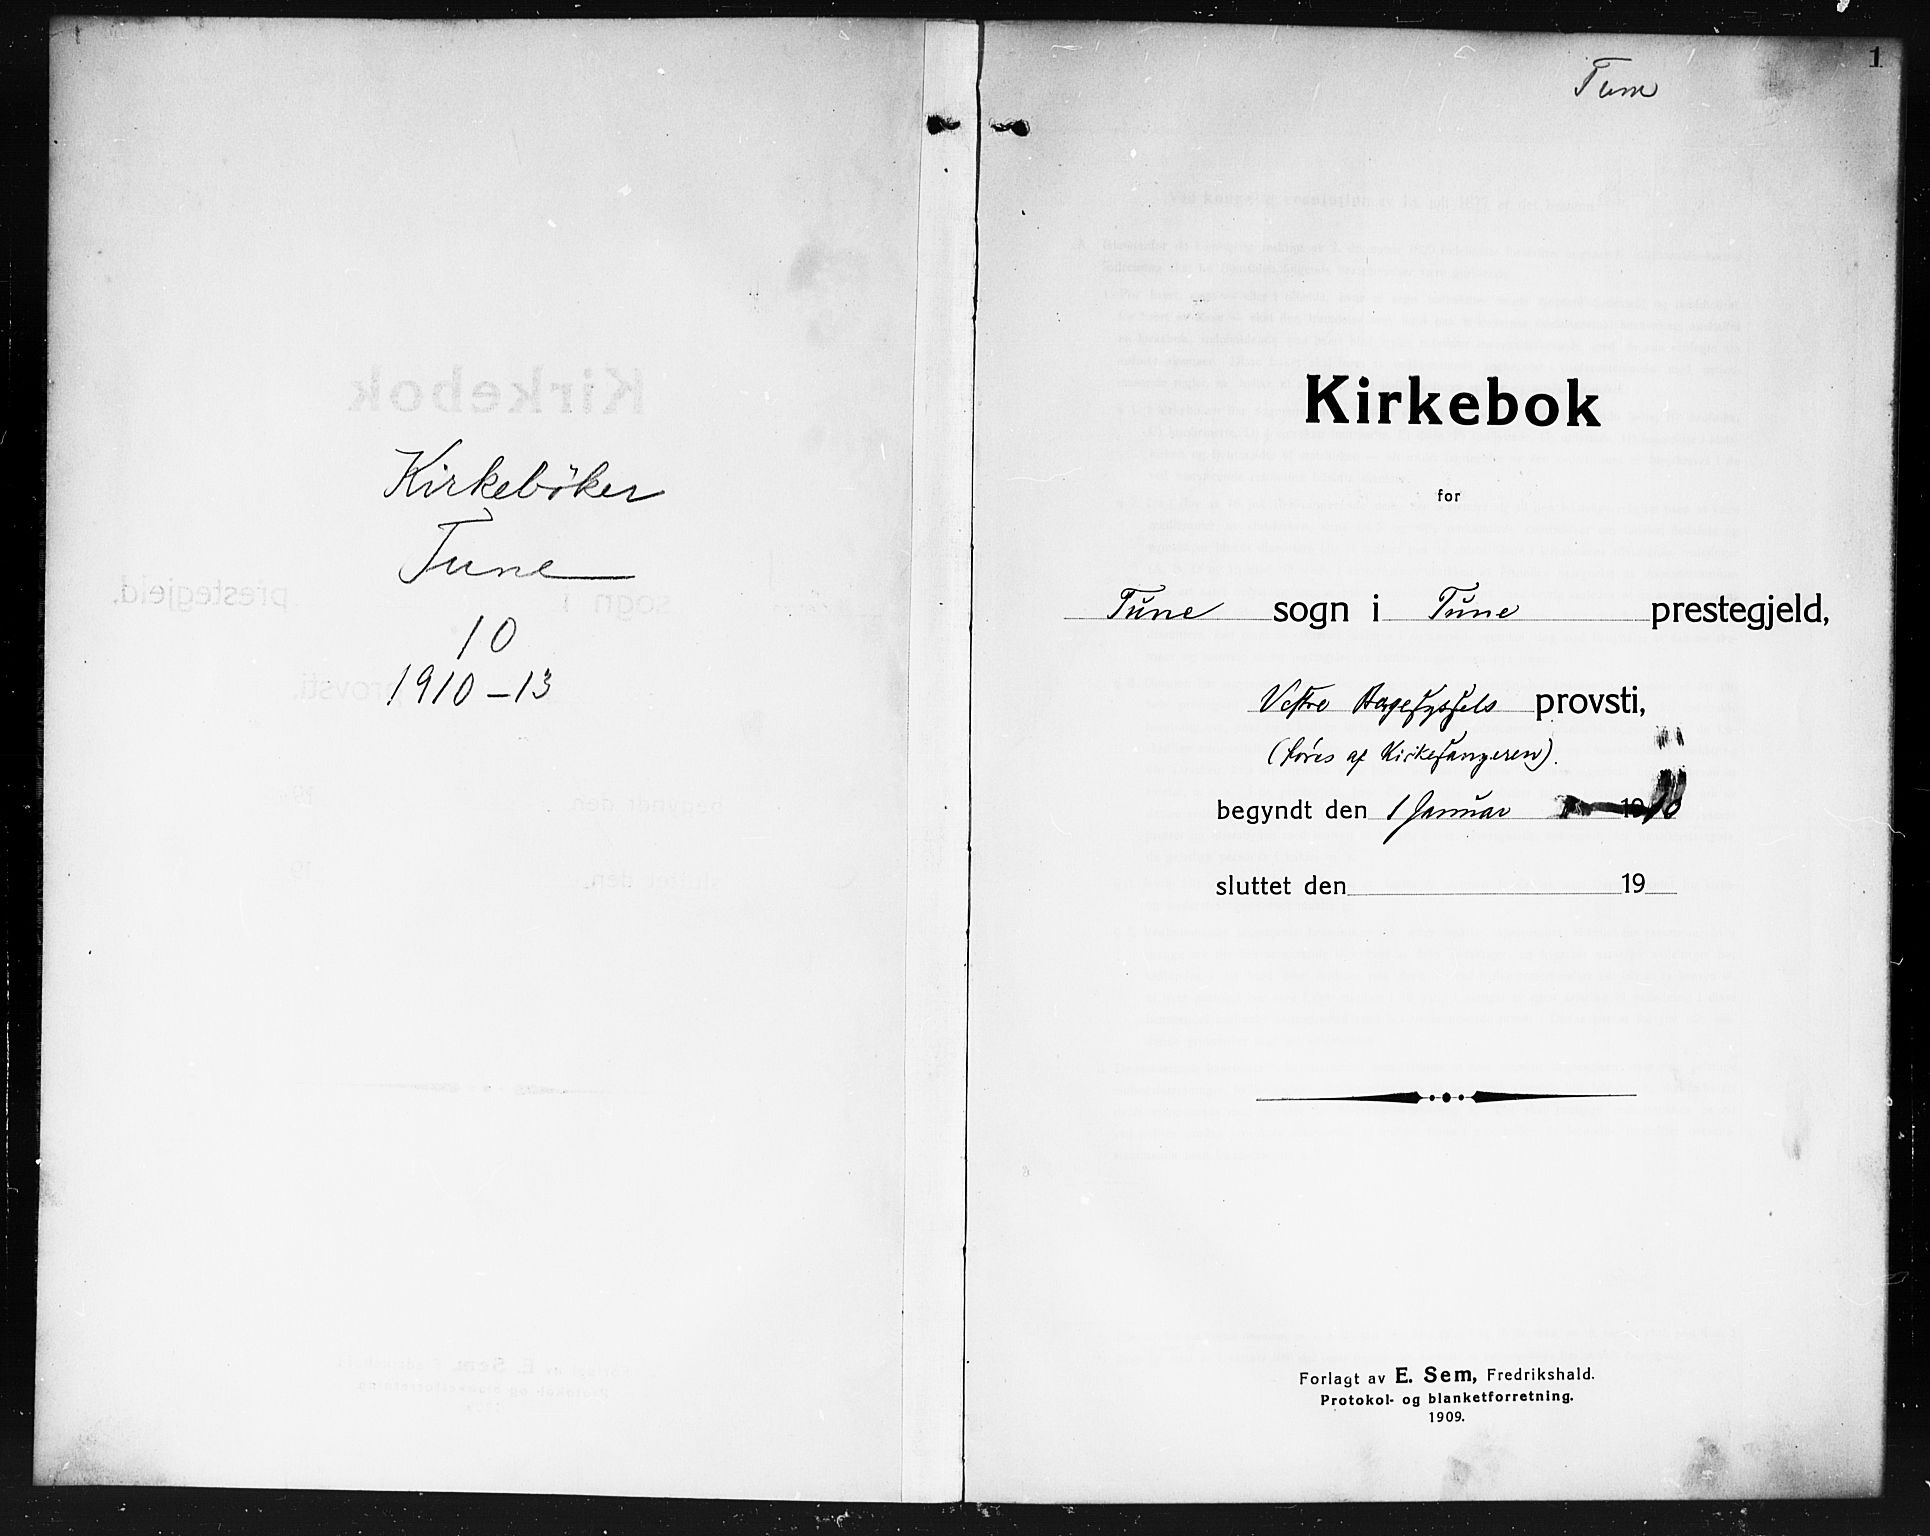 Kirkebøker
Tune
10
1910-13
1
Tune
Kirkebok
for
Tune sogn i Tune prestegjeld,
Vestre Borgesyssels provsti,
(føres af Kirkesangeren).
begyndt den 1 Januar 1910
sluttet den 19
Forlagt av E. Sem, Fredrikshald.
Protokol- og blanketforretning.
1909.